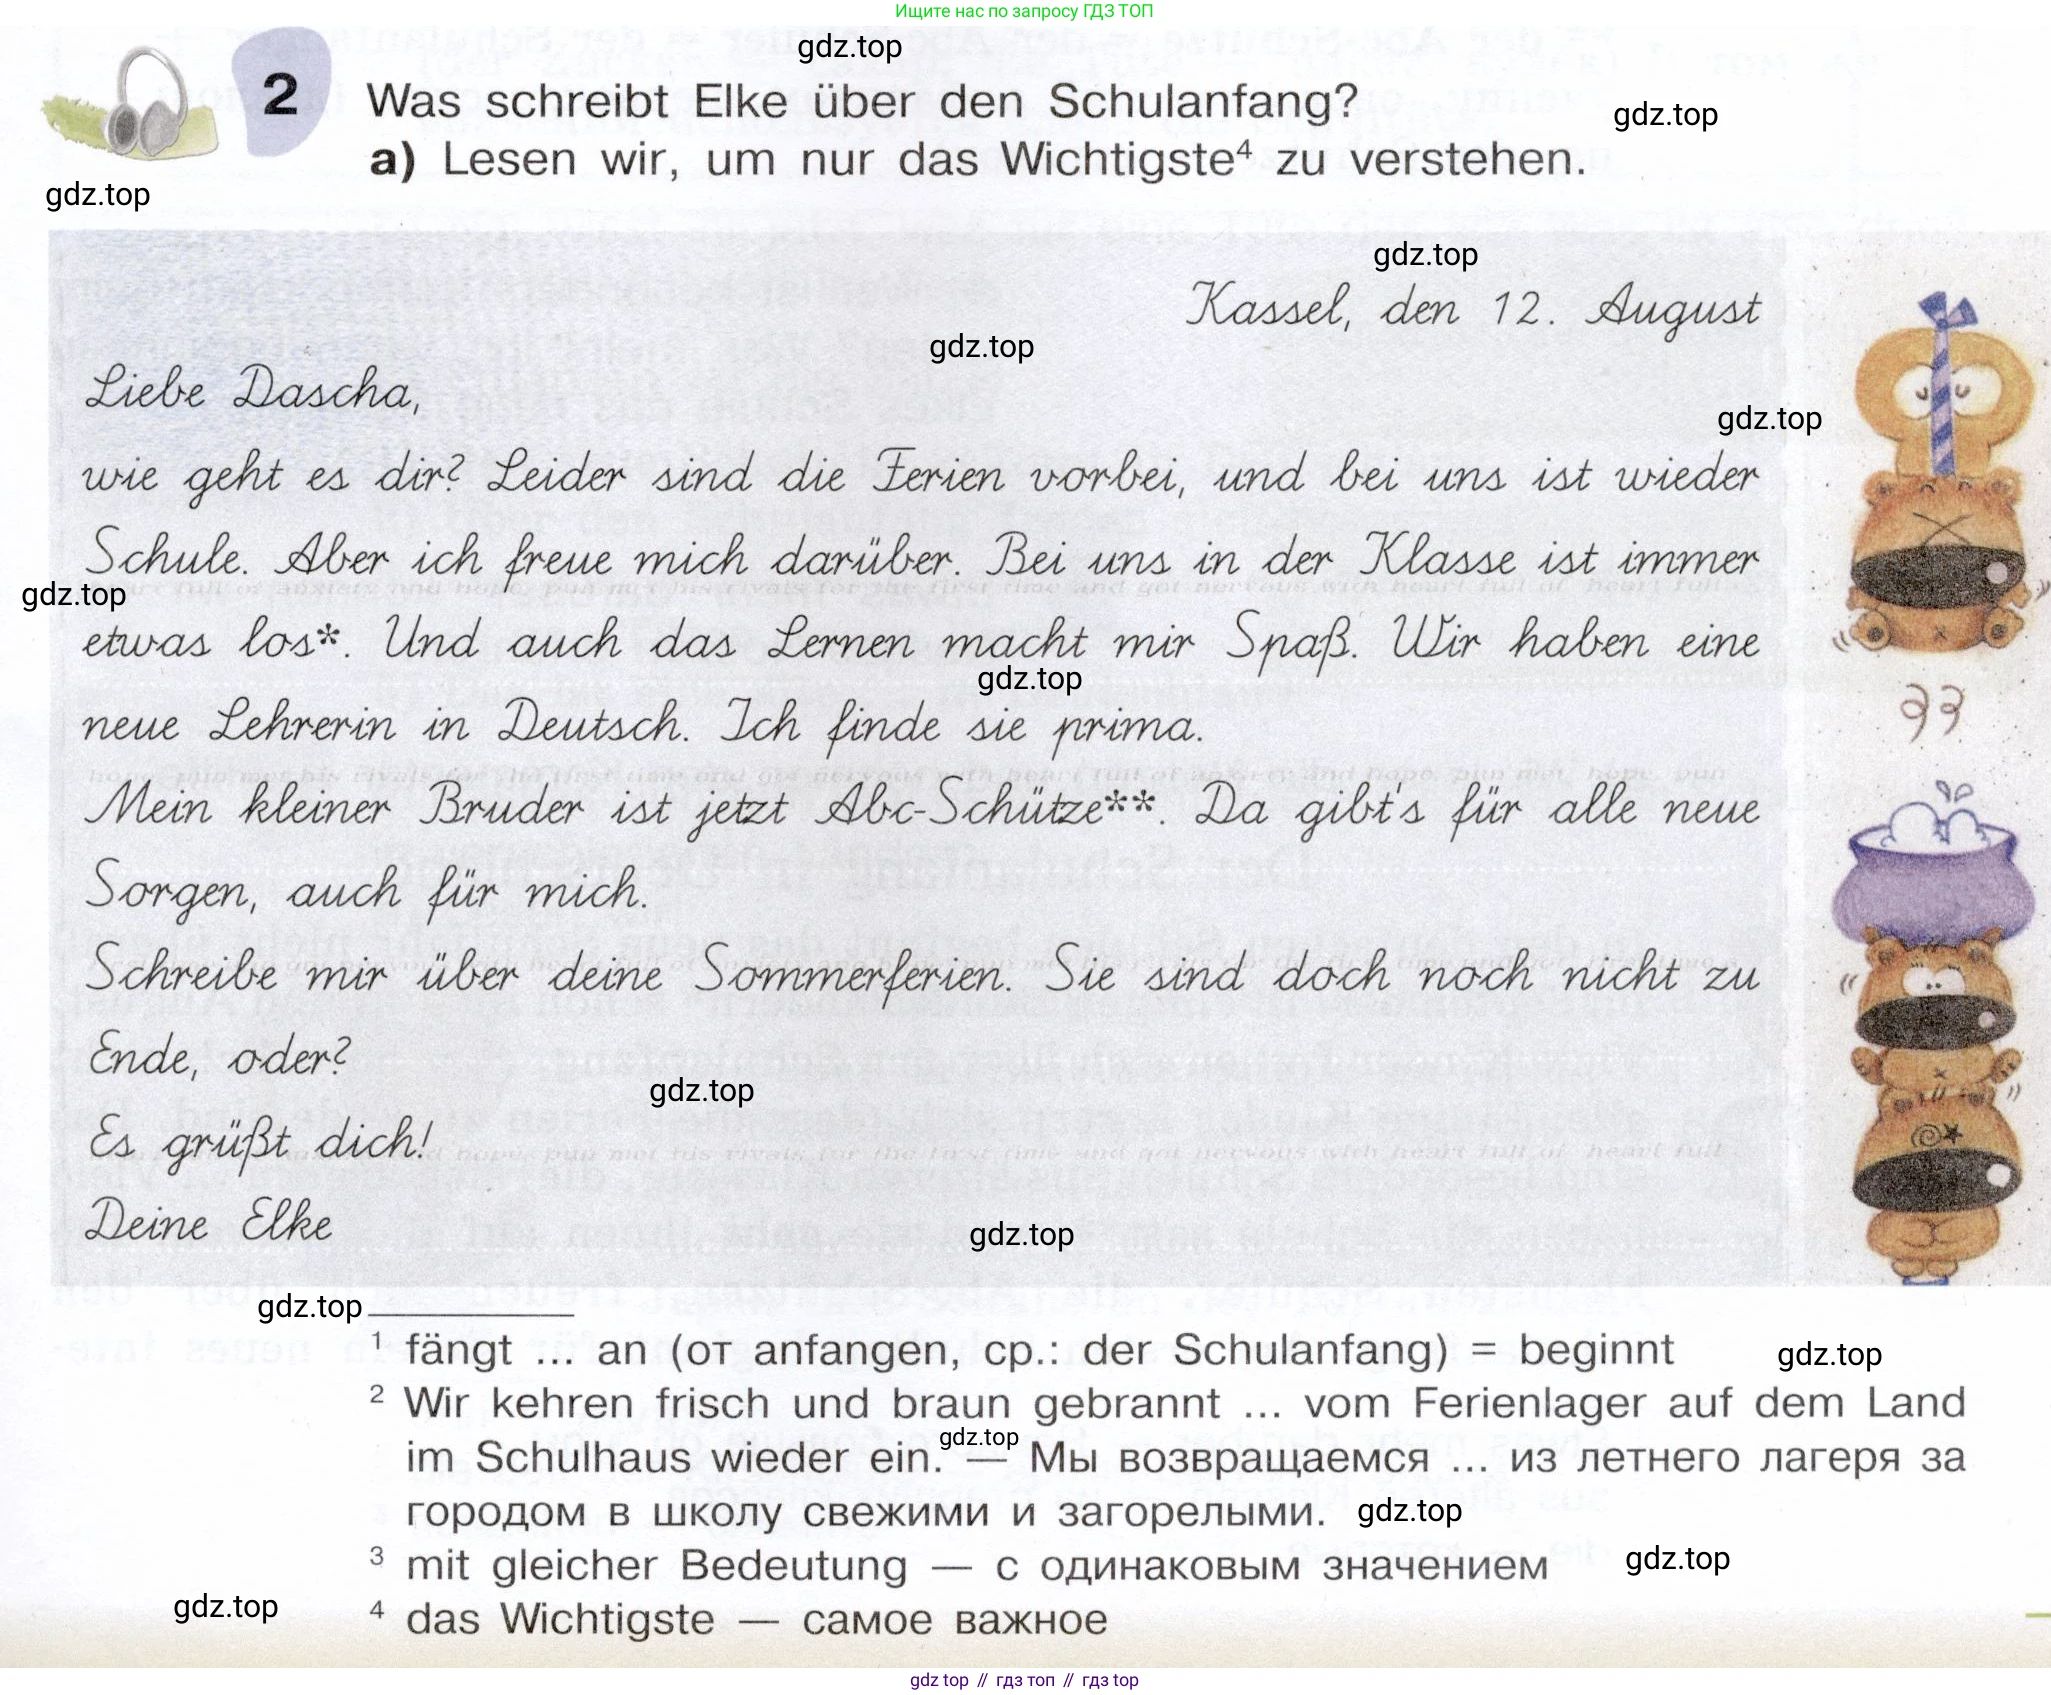 Ищите нас по запросу ГДЗ ТОП
gdz.top
2 Was schreibt Elke über den Schulanfang?
gdz.top
a) Lesen wir, um nur das Wichtigste⁴ zu verstehen.
gdz.top
gdz.top
Kassel, den 12. August
gdz.top
Liebe Dascha,
gdz.top
wie geht es dir? Leider sind die Ferien vorbei, und bei uns ist wieder
Schule. Aber ich freue mich darüber. Bei uns in der Klasse ist immer
gdz.top
etwas los*. Und auch das Lernen macht mir Spaß. Wir haben eine
gdz.top
neue Lehrerin in Deutsch. Ich finde sie prima.
Mein kleiner Bruder ist jetzt Abc-Schütze**. Da gibt's für alle neue
Sorgen, auch für mich.
Schreibe mir über deine Sommerferien. Sie sind doch noch nicht zu
Ende, oder?
gdz.top
Es grüßt dich!
Deine Elke
gdz.top
gdz.top
¹ fängt ... an (от anfangen, ср.: der Schulanfang) = beginnt
gdz.top
² Wir kehren frisch und braun gebrannt ... vom Ferienlager auf dem Land
gdz.top
im Schulhaus wieder ein. — Мы возвращаемся ... из летнего лагеря за
городом в школу свежими и загорелыми.
gdz.top
³ mit gleicher Bedeutung — с одинаковым значением
gdz.top
gdz.top
⁴ das Wichtigste — самое важное
gdz top // гдз топ // гдз top